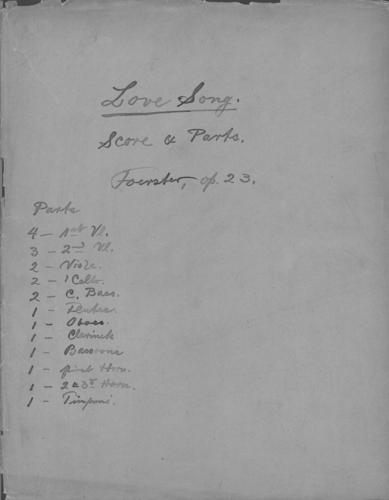 Love Song.
Score & Parts.
Foerster, op. 23.
Parts
4 – 1st Vl.
3 – 2nd Vl.
2 – Viole.
2 – 'Cello.
2 – C. Bass.
1 – Flutes.
1 – Oboes.
1 – Clarinets
1 – Bassoons
1 – first Horn.
1 – 2 & 3d Horn.
1 – Timpani.